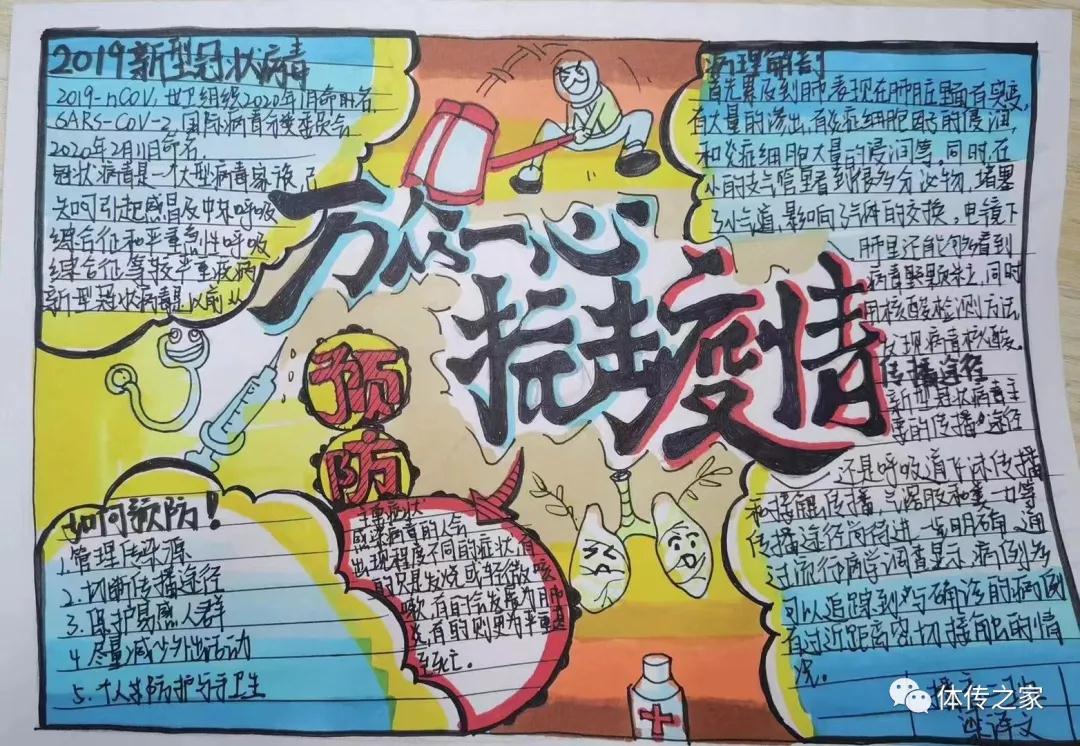 2019新型冠状病毒
2019-nCOV,世卫组织2020年1月命名
SARS-CoV-2,国际病毒分类委员会
2020年2月11日命名
冠状病毒是一个大型病毒家族,已
知可引起感冒及中东呼吸
综合征和严重急性呼吸
综合征等较严重疾病
新型冠状病毒是以前从
万众一心
抗击疫情
预
防
病理解剖
首先累及到肺,表现在肺脏里面有突变,
有大量的渗出,有炎症细胞因子的浸润,
和炎症细胞大量的浸润等。同时,在
小的支气管里看到很多分泌物,堵塞
了小气道,影响了气体的交换,电镜下
肺里还能够看到
病毒颗粒,同时
用核酸检测方法
发现病毒核酸。
传播途径
新型冠状病毒主
要的传播途径
还是呼吸道飞沫传播
和接触传播,气溶胶和粪-口等
传播途径尚待进一步明确。通
过流行病学调查显示,病例多
可以追踪到与确诊的病例
有过近距离密切接触的情
况。
如何预防!
1.管理传染源
2.切断传播途径
3.保护易感人群
4.尽量减少外出活动
5.个人防护与手卫生
主要症状
感染病毒的人会
出现程度不同的症状,有
的只是发烧或轻微咳
嗽,有的会发展为肺
炎,有的则更为严重甚
至死亡。
体传之家